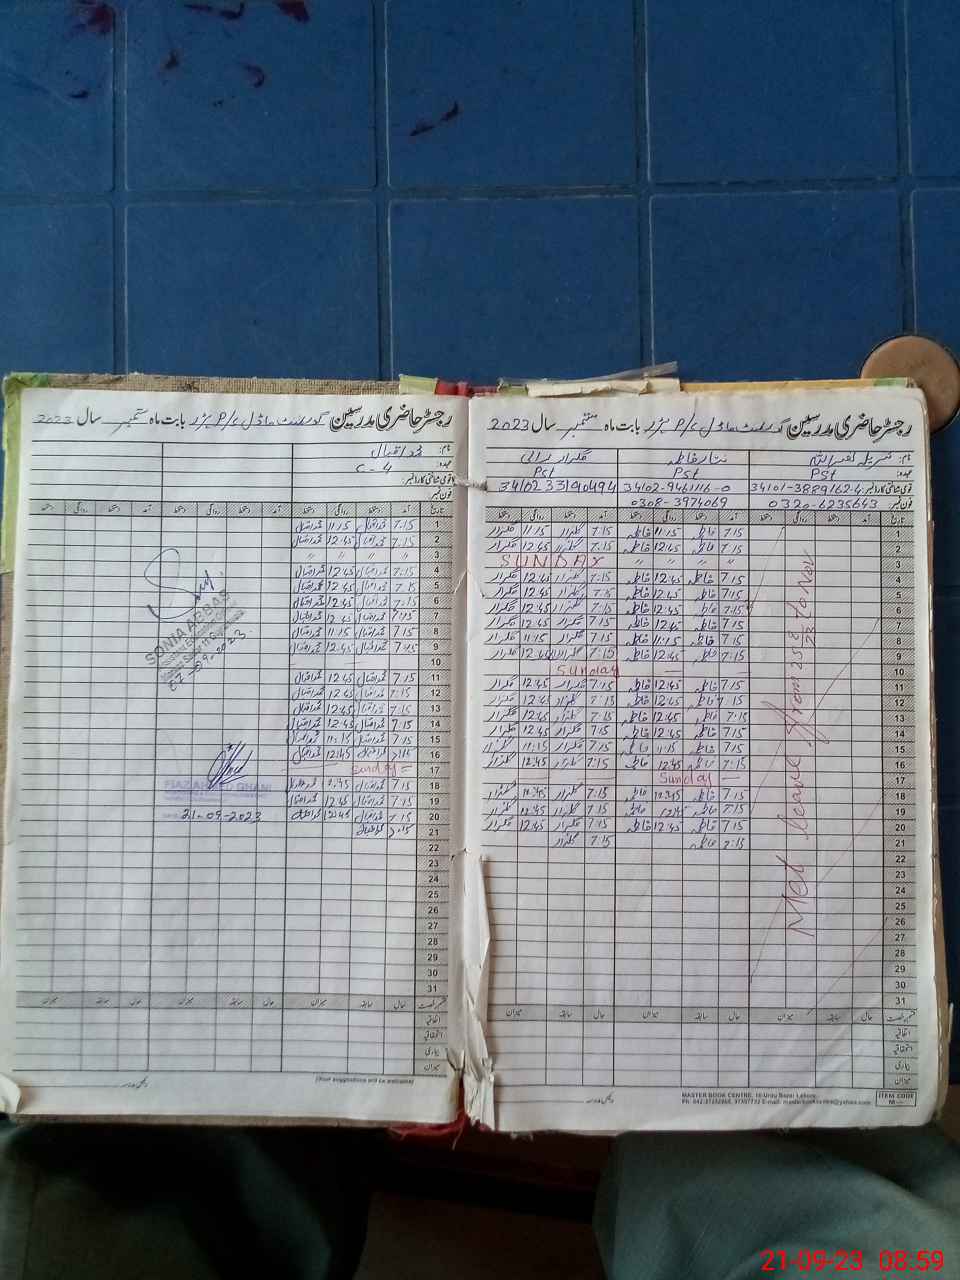 رجسٹر حاضری مدرسین گورنمنٹ ماڈل P/S ہزار بابت ماہ ستمبر سال 2023
نام:
عہدہ: Pst Pst Pst
قومی شناختی کارڈ نمبر: 34101-3889162-4 34102-9461116-0 3410233190494
فون نمبر 0320-6235643 0308-3974069
تاریخ آمد دستخط روانگی دستخط آمد دستخط روانگی دستخط آمد دستخط روانگی دستخط
1 7:15 فاطمہ 11:15 فاطمہ 7:15 گلزار 11:15 گلزار
2 7:15 فاطمہ 12:45 فاطمہ 7:15 گلزار 12:45 گلزار
3 " " " " SUNDAY
4 7:15 فاطمہ 12:45 فاطمہ 7:15 گلزار 12:45 گلزار
5 7:15 فاطمہ 12:45 فاطمہ 7:15 گلزار 12:45 گلزار
6 7:15 فاطمہ 12:45 فاطمہ 7:15 گلزار 12:45 گلزار
7 7:15 فاطمہ 12:45 فاطمہ 7:15 گلزار 12:45 گلزار
8 7:15 فاطمہ 11:15 فاطمہ 7:15 گلزار 11:15 گلزار
9 7:15 فاطمہ 12:45 فاطمہ 9:15 گلزار 12:45 گلزار
10 Sunday
11 7:15 فاطمہ 12:45 فاطمہ 7:15 گلزار 12:45 گلزار
12 7:15 فاطمہ 12:45 فاطمہ 7:15 گلزار 12:45 گلزار
13 7:15 فاطمہ 12:45 فاطمہ 7:15 گلزار 12:45 گلزار
14 7:15 فاطمہ 12:45 فاطمہ 7:15 گلزار 12:45 گلزار
15 7:15 فاطمہ 11:15 فاطمہ 7:15 گلزار 11:15 گلزار
16 7:15 فاطمہ 12:45 فاطمہ 7:15 گلزار 12:45 گلزار
17 Sunday
18 7:15 فاطمہ فاطمہ 7:15 گلزار گلزار
19 7:15 فاطمہ فاطمہ 7:15 گلزار 12:45 گلزار
20 7:15 فاطمہ 12:45 فاطمہ 7:15 گلزار 12:45 گلزار
21 7:15 فاطمہ 7:15 گلزار
22
23
24
25
26
27
28
29
30
31
Met leave from 25 to Nov
حال سابقہ میزان حال سابقہ میزان حال سابقہ میزان
اتفاقیہ
استحقاقیہ
بیماری
میزان
MASTER BOOK CENTRE, 16-Urdu Bazar Lahore.
ITEM CODE
رجسٹر حاضری مدرسین گورنمنٹ ماڈل P/S ہزار بابت ماہ ستمبر سال 2023
نام: محمد اقبال
عہدہ: C-4
قومی شناختی کارڈ نمبر:
فون نمبر
تاریخ آمد دستخط روانگی دستخط آمد دستخط روانگی دستخط آمد دستخط روانگی دستخط
1 7:15 محمد اقبال 11:15 محمد اقبال
2 7:15 محمد اقبال 12:45 محمد اقبال
3 " " " "
4 7:15 محمد اقبال 12:45 محمد اقبال
5 7:15 محمد اقبال 12:45 محمد اقبال
6 7:15 محمد اقبال 12:45 محمد اقبال
7 7:15 محمد اقبال 12:45 محمد اقبال
8 7:15 محمد اقبال 11:15 محمد اقبال
9 7:15 محمد اقبال 12:45 محمد اقبال
10
11 7:15 محمد اقبال 12:45 محمد اقبال
12 7:15 محمد اقبال 12:45 محمد اقبال
13 7:15 محمد اقبال 12:45 محمد اقبال
14 7:15 محمد اقبال 12:45 محمد اقبال
15 7:15 محمد اقبال 11:15 محمد اقبال
16 محمد اقبال 12:45 محمد اقبال
17 Sunday
18 7:15 محمد اقبال محمد اقبال
19 7:15 محمد اقبال 12:45 محمد اقبال
20 7:15 محمد اقبال 12:45 محمد اقبال
21 7:15 محمد اقبال
22
23
24
25
26
27
28
29
30
31
SONIA ABBAS
07-09-2023
FIAZ AHMED GHANI
21-09-2023
حال سابقہ میزان حال سابقہ میزان حال سابقہ میزان
اتفاقیہ
استحقاقیہ
بیماری
میزان
(Your suggestions will be welcome)
21-09-23 08:59